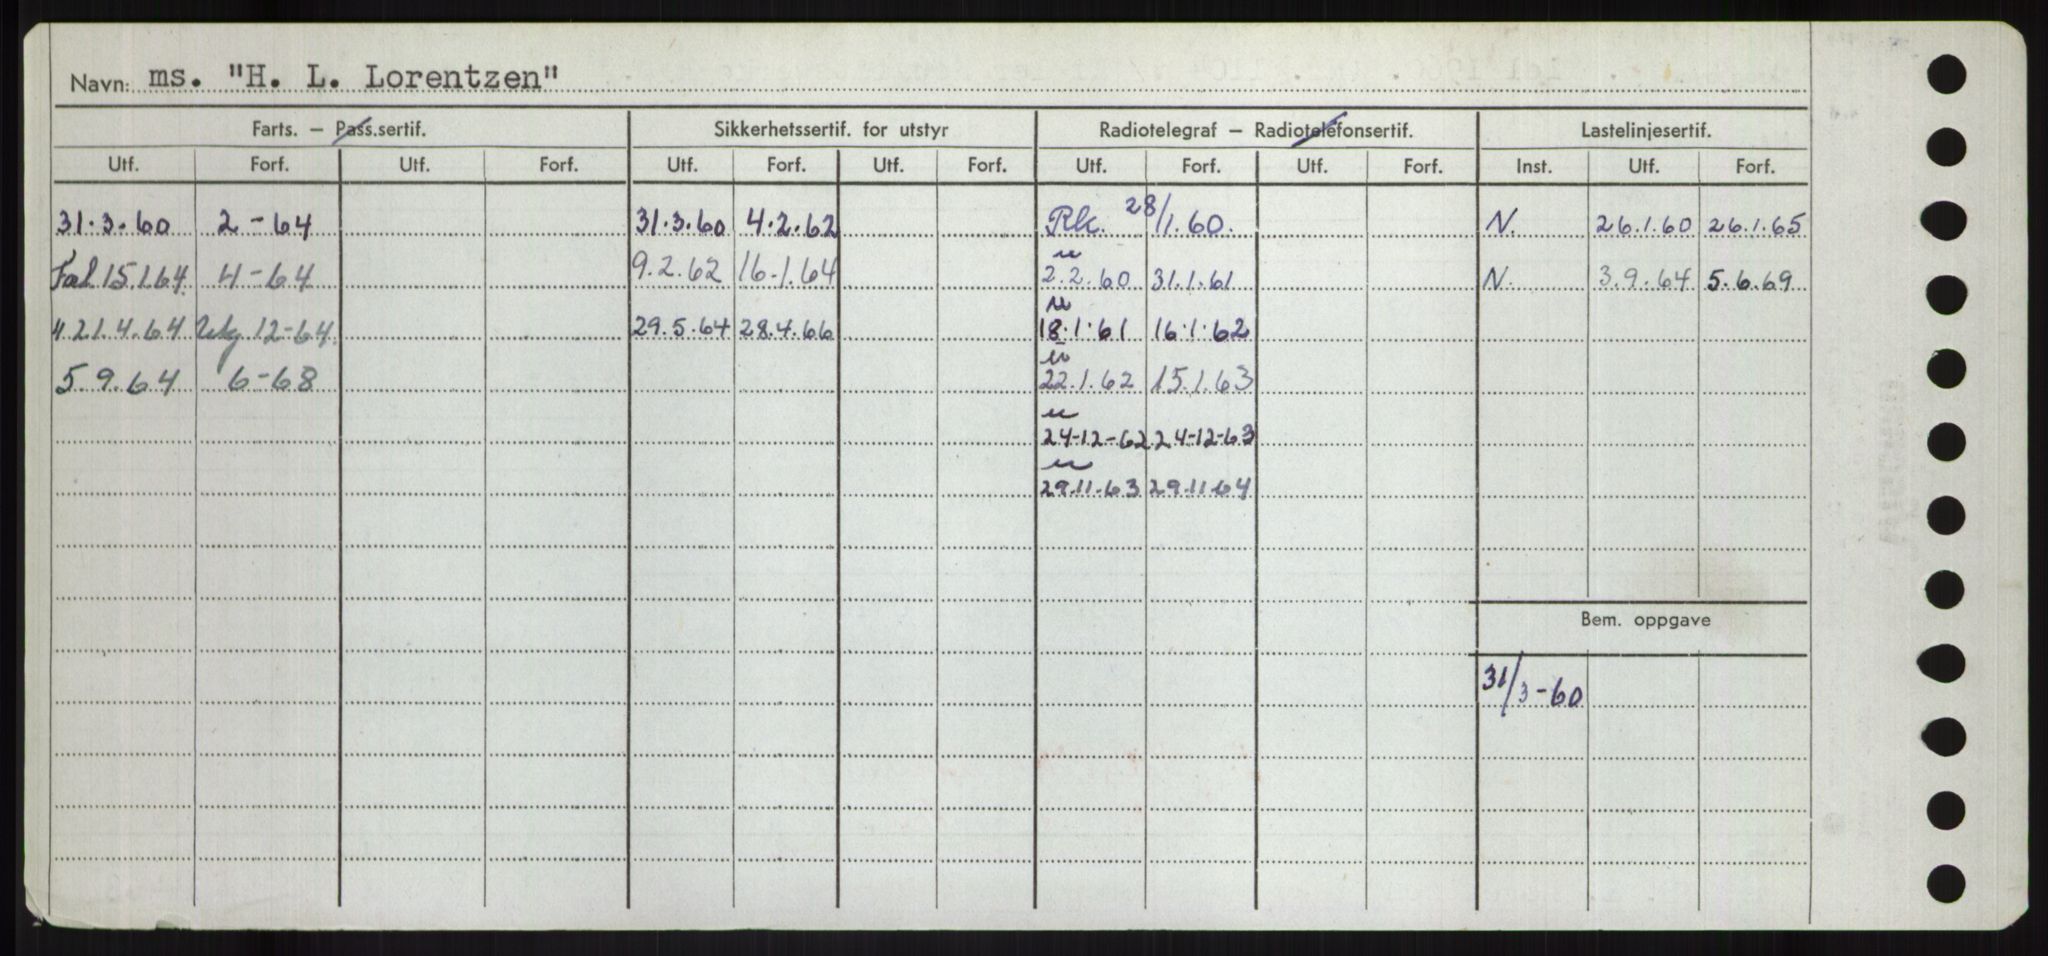 Navn: ms. "H. L. Lorentzen"
Farts. – Pass.sertif. Sikkerhetssertif. for utstyr Radiotelegraf – Radiotelefonsertif. Lastelinjesertif.
Utf. Forf. Utf. Forf. Utf. Forf. Utf. Forf. Utf. Forf. Utf. Forf. Inst. Utf. Forf.
31.3.60 2-64 31.3.60 4.2.62 Rk. 28/1.60. N. 26.1.60 26.1.65
"
15.1.64 4-64 9.2.62 16.1.64 2.2.60 31.1.61 N. 3.9.64 5.6.69
"
" 21.4.64 12-64 29.5.64 28.4.66 18.1.61 16.1.62
"
5.9.64 6-68 22.1.62 15.1.63
"
24-12-62 24-12-63
"
29.11.63 29.11.64
Bem. oppgave
31/3-60